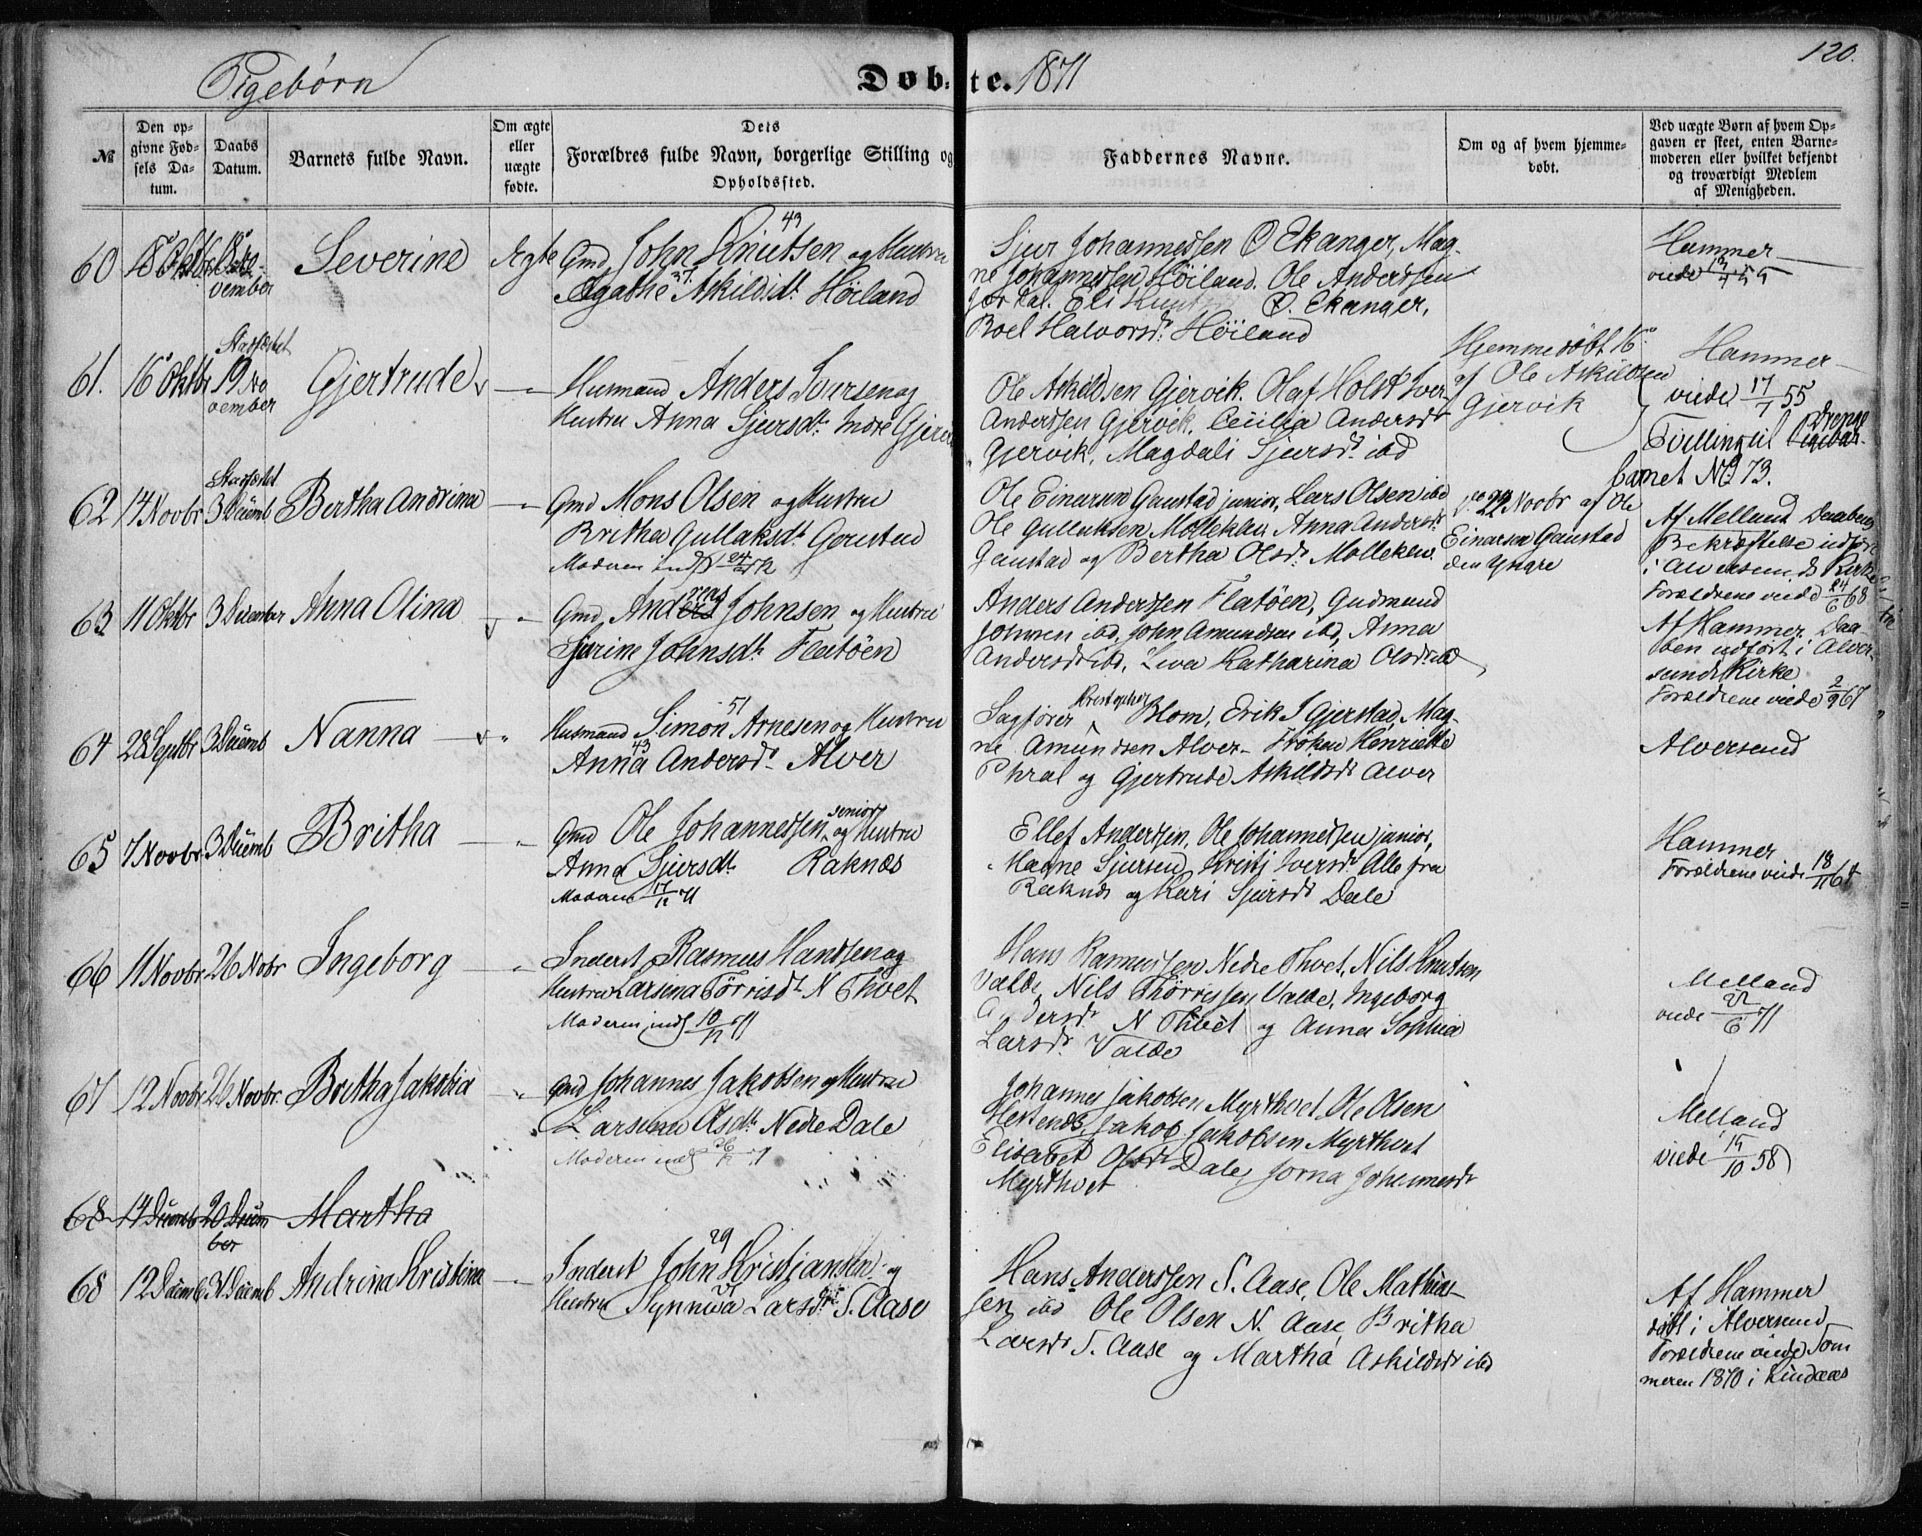 120.
Pigebørn Døbte. 1871
№
Den opgivne Fødsels Datum.
Daabs Datum.
Barnets fulde Navn.
Om ægte eller uægte fødte.
Dets Forældres fulde Navn, borgerlige Stilling og Opholdssted.
Faddernes Navne.
Om og af hvem hjemmedøbt.
Ved uægte Børn af hvem Opgaven er skeet, enten Barnemoderen eller hvilket bekjendt og troværdigt Medlem af Menigheden.
60 18 Oktbr vember Severine Ægte Gmd John Knutsen 43 og Hustru
Agathe Askildsdt. Høiland
Sjur Johannessen Ø Ekanger, Mag-
ne Johannessen Høiland. Ole Anderssen
Eli Ø. Ekanger,
Roel Halvorsdt. Høiland
Hammer
viede
61. 16 Oktbr Stadfæstet 19 No
vember Gjertrude Husmand Anders Iversen og
Hustru Anna Sjursdt. Indre Gjervik
Ole Askildsen Gjervik. Olaf Holst Iver
Anderssen Gjervik, Cecilia Andersdt
Gjervik, Magdali Sjursdt. ibd
Hjemmedøbt 16
af Ole Askildsen
Gjervik
Hammer
viede 17/7 55
Tvilling til Drenge
barnet No 73.
62 14 Novbr Stadfæstet 3 Decemb Bertha Andrina Gmd Mons Olsen og Hustru
Britha Gullaksdt. Goustad
Moderen indl 24/12
Ole Einarsen Gaustad junior, Lars Olsen ibd
Ole Gullaksen Mølleken Anna Andersdt
Gaustad og Bertha Olsdt. Mølleken.
22 Novbr af Ole
Einarsen Gaustad
den Yngre
Af Melland Daabens
Bekræftelse udført
i Alversunds Kirke
Forældrene viede 24/6 68
63 11 Oktbr 3 December Anna Olina Gmd Anders Johnsen og Hustru
Sjurine Johnsdt. Flatøen
Anders Anderssen Flatøen, Gudmund
Johnsen ibd, John Amundsen ibd, Anna
Andersdt ibd, Liva Katharina Olsdt ibd
Af Hammer, Daa-
ben udført i Alver-
sunds Kirke
Forældrene viede 2/9 67
64 28 Septbr 3 Decemb Nanna Husmand Simon Arnesen 51 og Hustru
Anna 43 Andersdt. Alver
Sagfører Kristopher Blom, Erik J Gjerstad, Mag-
ne Amundsen Alver. Frøken Henriette
og Gjertrude Askildsdt Alver
Alversund
65 7 Novbr 3 Decemb Britha Gmd Ole Johannessen senior og Hustru
Anna Sjursdt. Raknæs
Moderen 17/12 71
Ellef Anderssen, Ole Johannessen junior,
Magne Sjursen, Kristi Iversdt Alle fra
Raknæs og Kari Sjursdt Dale
Hammer
Forældrene viede 18/11
66 11 Novbr 26 Nobr Ingeborg Inderst Rasmus Hanssen og
Hustru Larsina Tørrisdt N Thvet
Moderen indl 10/12 71
Hans Rasmussen Nedre Thvet, Nils Knutsen
Valde, Nils Thørrissen Valde, Ingeborg
Andersdt N Thvet og Anna Sophia
Larsdt. Valde
Melland
viede 22/6 71
67 12 Novbr 26 Novbr. Britha Jakobia Gmd Johannes Jakobsen og Hustru
Larsina Olsdt. Nedre Dale
Moderen indl 26/12 71
Johannes Jakobsen Myrthvet, Ole Olsen
Jakob Jakobsen Myrthvet
Elisabet Olsdt Dale, Jorna Johannesdt
Myrthvet
Melland
viede 15/10 58
68 14 Decemb 20 Decem
ber Martha
68 12 Decemb 31 Decemb Andrina Kristina Inderst John 29 Kristjansen og
Hustru Synnøva Larsdt. S. Aase
Hans Anderssen S. Aase, Ole Mathias-
sen ibd Ole Olsen N. Aase, Britha
Larsdt S. Aase og Martha Askildsdt ibd
Af Hammer
døbt i Alversund
Forældrene viede Som
meren 1870 i Lindaas